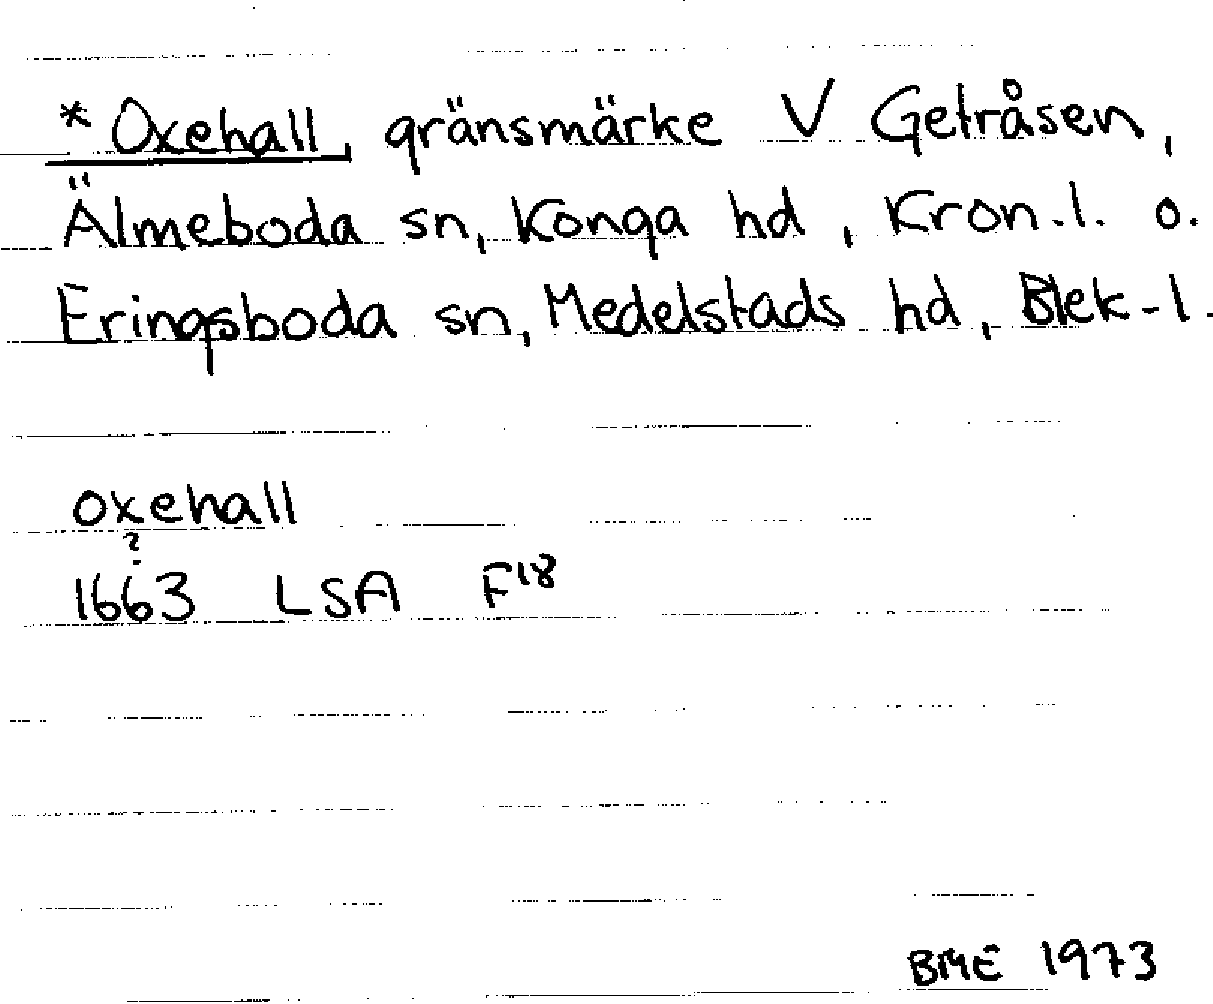 *Oxehall, gränsmärke V Getråsen,
Älmeboda sn, Konga hd, Kron.l. o.
Eringsboda sn, Medelstads hd, Blek-l.
oxehall
?
1663 LSA F18
BME 1973